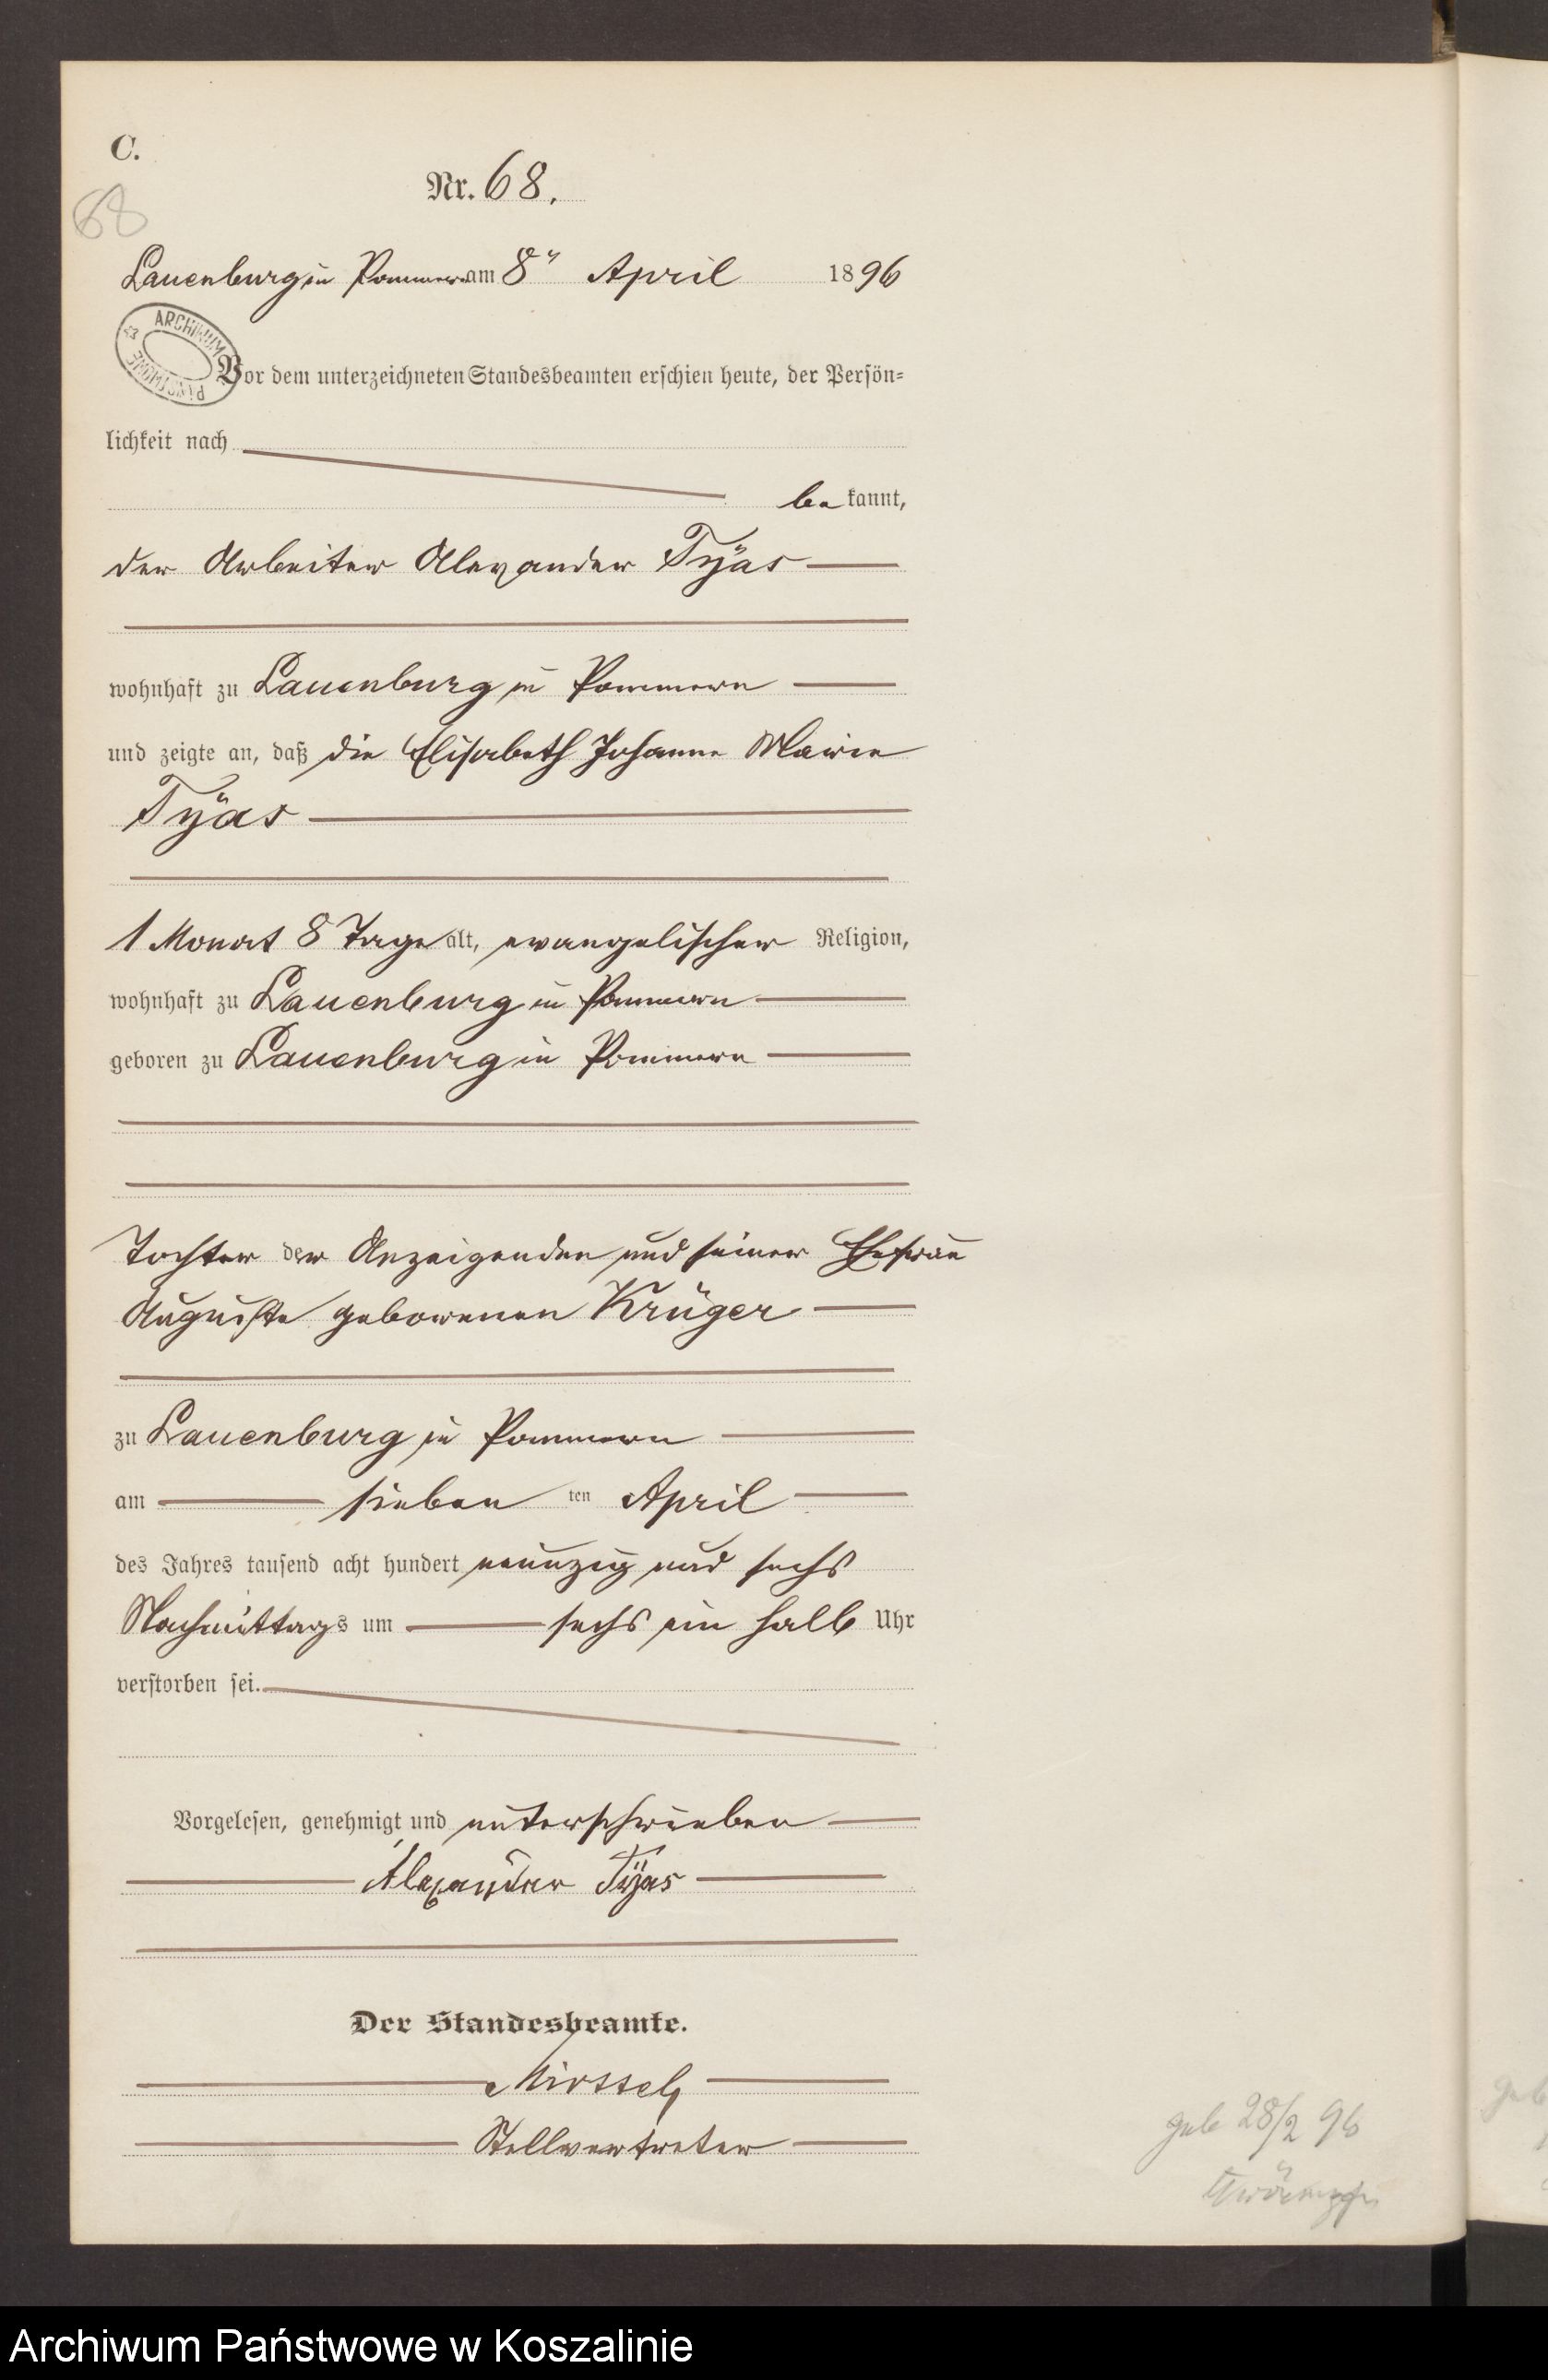 C.
Nr. 68.
68
Lauenburg in Pommern am 8ⁿ April 1896
ARCHIWUM PAŃSTWOWE
Vor dem unterzeichneten Standesbeamten erschien heute, der Persön=
lichkeit nach
bekannt,
der Arbeiter Alexander Tÿas
wohnhaft zu Lauenburg in Pommern
und zeigte an, daß die Elisabeth Johanne Marie
Tÿas
1 Monat 8 Tage alt, evangelischer Religion,
wohnhaft zu Lauenburg in Pommern
geboren zu Lauenburg in Pommern
Tochter der Anzeigenden und seiner Ehefrau
Auguste geborenen Krüger
zu Lauenburg in Pommern
am sieben ten April
des Jahres tausend acht hundert neunzig und sechs
Nachmittags um sechs ein halb Uhr
verstorben sei.
Vorgelesen, genehmigt und unterschrieben
Alexander Tÿas
Der Standesbeamte.
Stellvertreter
geb 28/2 96
Archiwum Państwowe w Koszalinie